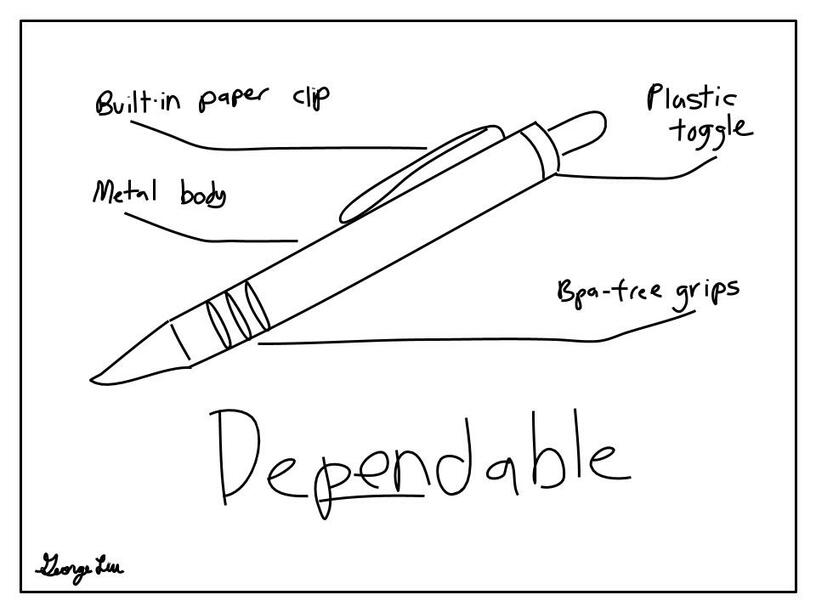 Built-in paper clip
Plastic
toggle
Metal body
Bpa-free grips
Dependable
George Liu